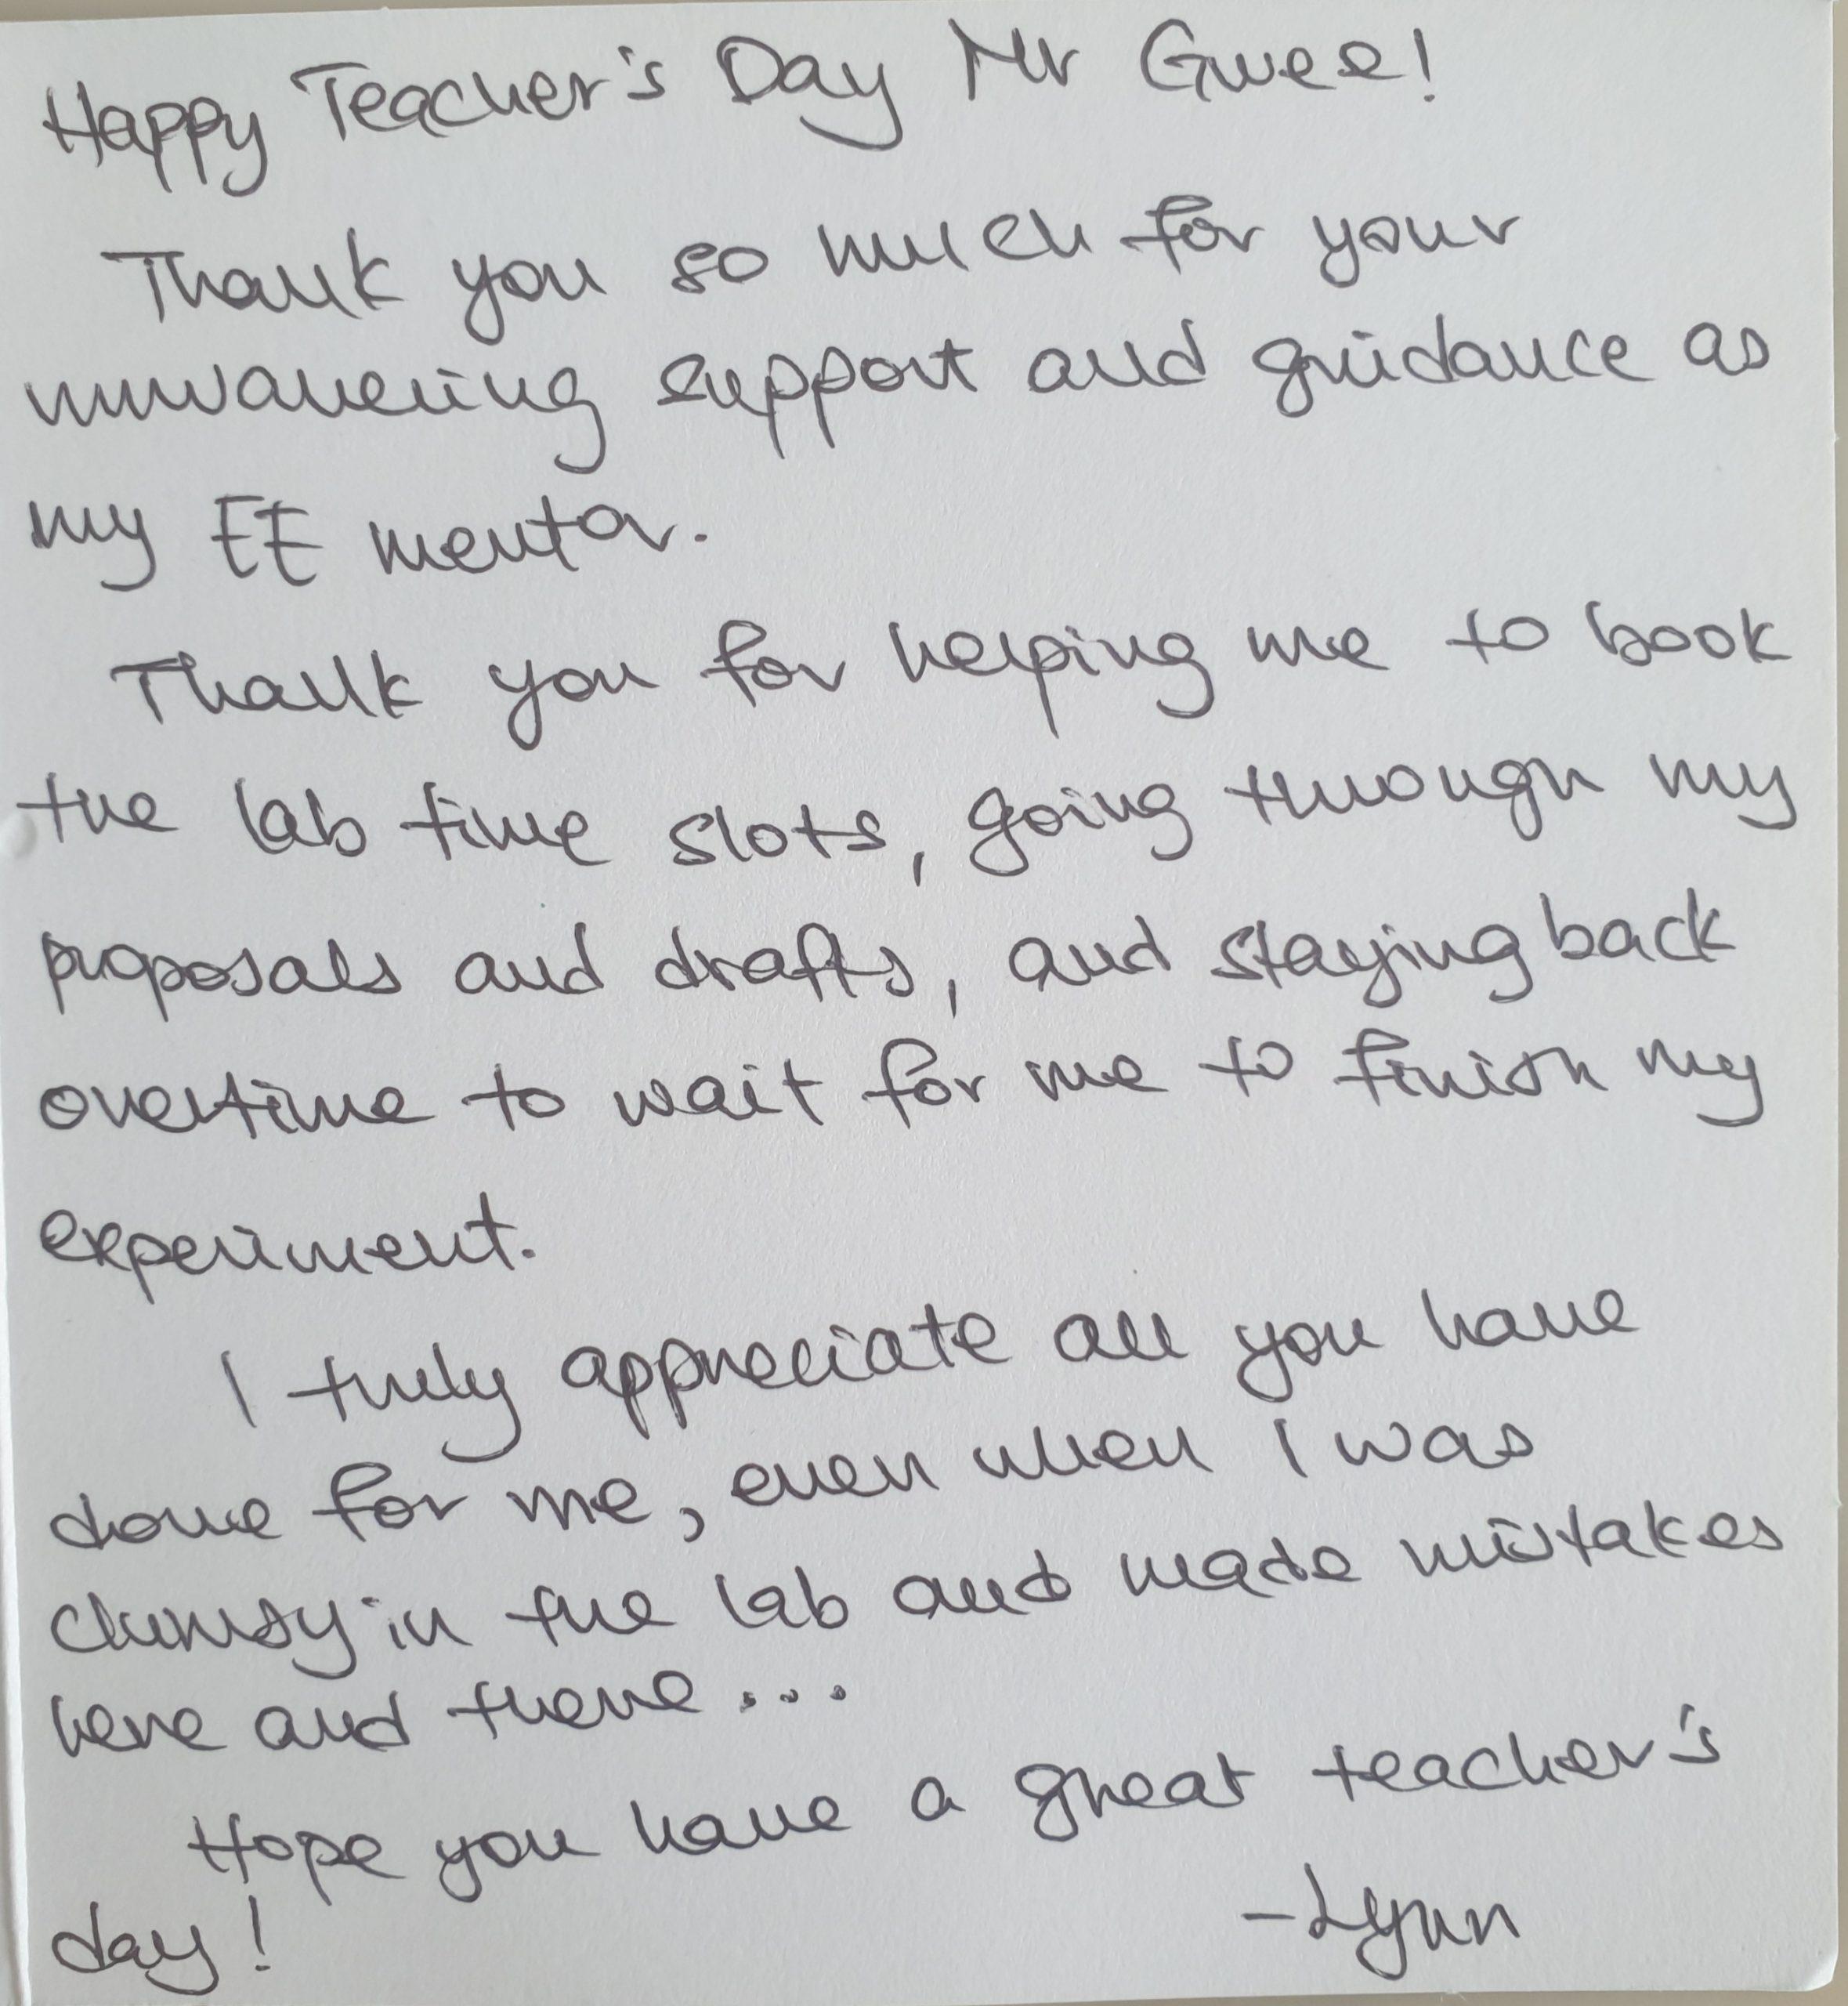 Happy Teacher's Day Mr Gwee!
Thank you so much for your
unwavering support and guidance as
my EE mentor.
Thank you for helping me to book
the lab time slots, going through my
proposals and drafts, and staying back
overtime to wait for me to finish my
experiment.
I truly appreciate all you have
done for me, even when I was
clumsy in the lab and made mistakes
here and there...
Hope you have a great teacher's
day!
-Lynn